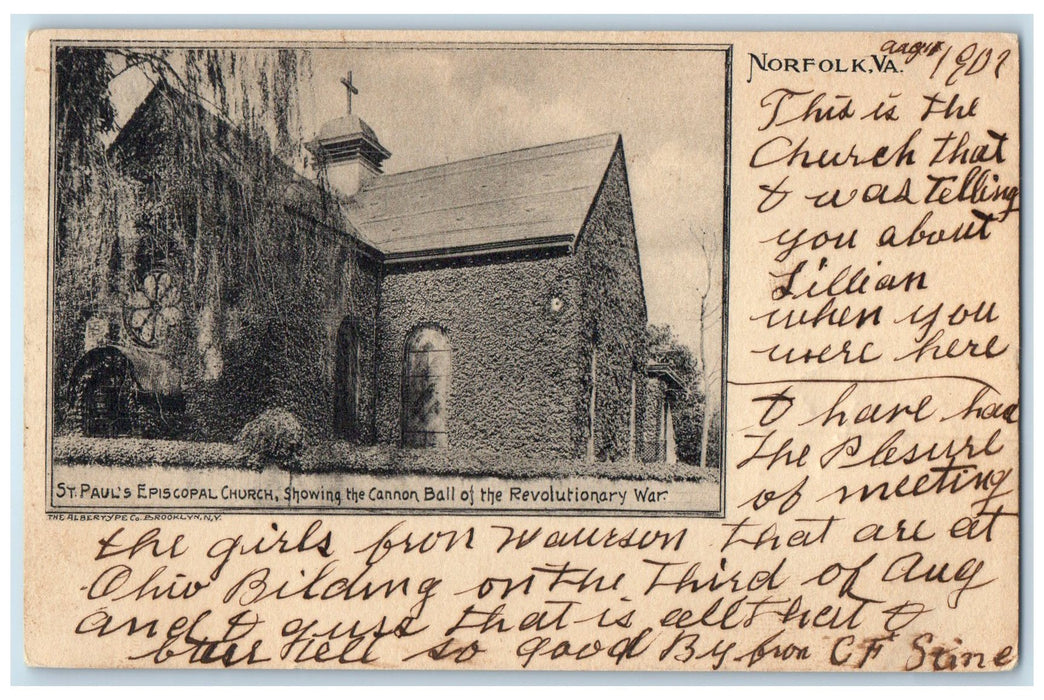 NORFOLK, VA.
Aug 1907
This is the
Church that
I was Telling
you about
Lillian
when you
were here
I have had
The Plesure
of meeting
the girls from that are at
Ohio Bilding on the Third of Aug
and I guss that is all that I
tell so good By from C F
ST. PAUL'S EPISCOPAL CHURCH, Showing the Cannon Ball of the Revolutionary War.
THE ALBERTYPE CO. BROOKLYN, N.Y.